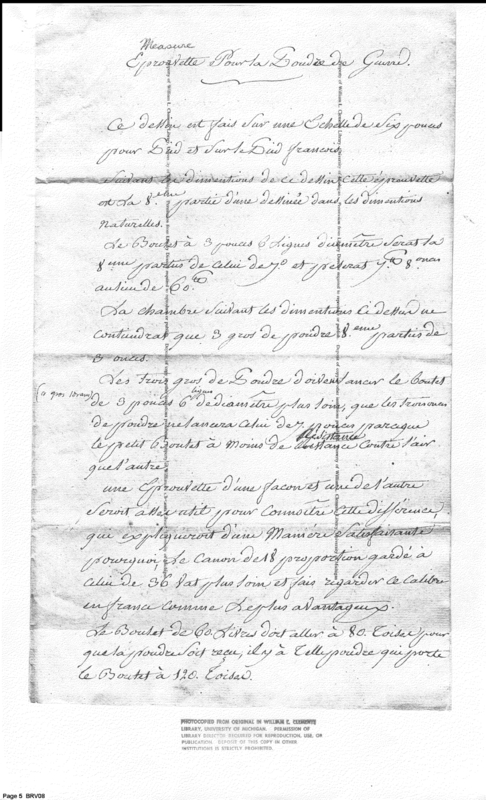 Measure
Eprouvette Pour la Poudre de Guerre.
Ce dessin est fais sur une Echelle de Six pouces
pour Pied et sur le Pied francois.
Suivant les dimentions de ce dessin cette éprouvette
est la 8.eme partie d'une dessinée dans les dimentions
naturelles.
Le Boulet à 3 pouces 6 lignes diamêtre serat la
8eme partie de Celui de 7.o et peserat 7.tt 8 onces
au lieu de 60.tt
La chambre Suivant les dimentions Ci dessus ne
contiendrat que 3 gros de poudre 8eme partie de
3 onces.
(a gros 1 dram)
Les trois gros de Poudre doivent lancer le Boulet
de 3 pouces 6 lignes de diamêtre plus loin, que les trois onces
de poudre ne lancera Celui de 7 pouces parceque
le petit Boulet à Moins de Résistance Contre l'air
que l'autre.
une Eprouvette d'une facon et une de l'autre
seroit assez utile pour connoître Cette différence
que expliqueroit d'une Maniére Satisfaisante
pourquoi le Canon de 18 proportion gardé à
Celui de 36 bat plus loin et fais regarder ce Calibre
en france comme Le plus avantageux.
Le Boulet de 60 Livres doit aller à 80. Toises pour
que la poudre soit recu, il y à Telle poudre qui porte
le Boulet à 120. Toises.
PHOTOCOPIED FROM ORIGINAL IN WILLIAM L. CLEMENTS
LIBRARY, UNIVERSITY OF MICHIGAN. PERMISSION OF
LIBRARY DIRECTOR REQUIRED FOR REPRODUCTION, USE, OR
PUBLICATION. DEPOSIT OF THIS COPY IN OTHER
INSTITUTIONS IS STRICTLY PROHIBITED.
Page 5 BRV08